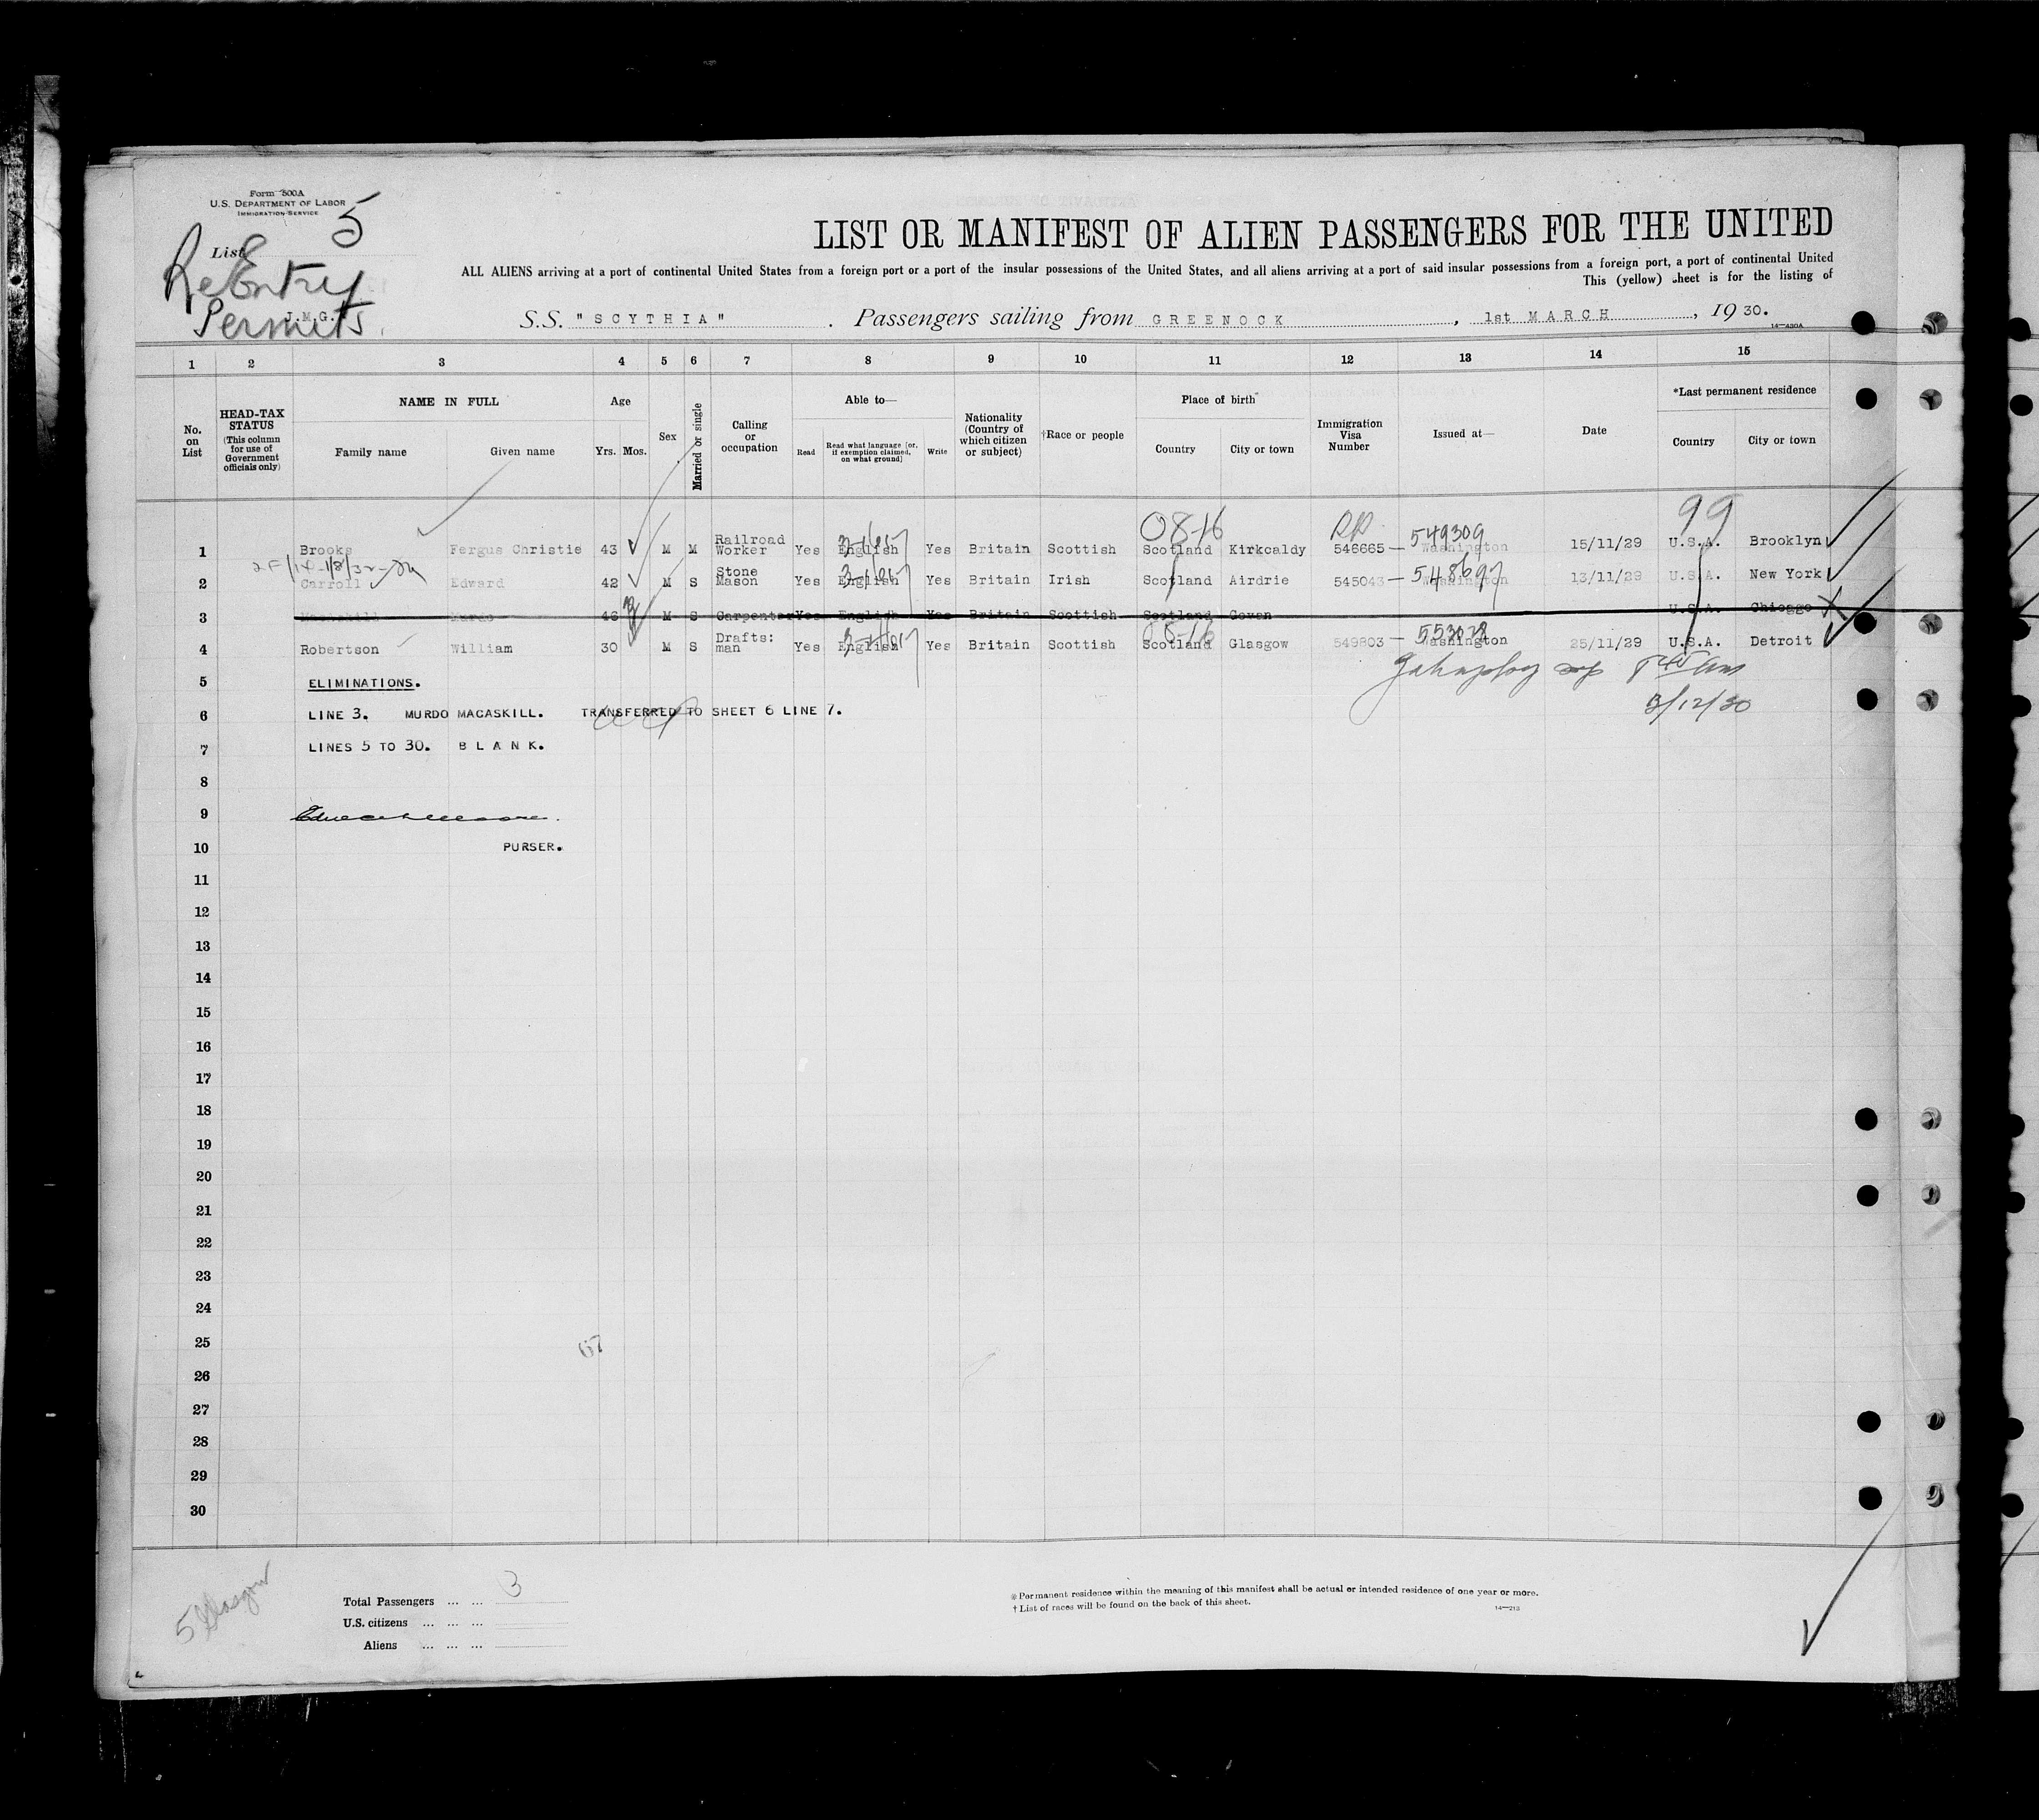 Form 500A
U.S. DEPARTMENT OF LABOR
IMMIGRATION SERVICE
5
List
ReEntry
Permits.
J.M.G.
LIST OR MANIFEST OF ALIEN PASSENGERS FOR THE UNITED
ALL ALIENS arriving at a port of continental United States from a foreign port or a port of the insular possessions of the United States, and all aliens arriving at a port of said insular possessions from a foreign port, a port of continental United
This (yellow) sheet is for the listing of
S.S. "SCYTHIA". Passengers sailing from GREENOCK, 1st MARCH, 1930.
14—430A
1 2 3 4 5 6 7 8 9 10 11 12 13 14 15
No. on List
HEAD-TAX STATUS (This column for use of Government officials only)
NAME IN FULL
Family name Given name
Age
Yrs. Mos.
Sex
Married or single
Calling or occupation
Able to—
Read
Read what language [or, if exemption claimed, on what ground]
Write
Nationality (Country of which citizen or subject)
†Race or people
Place of birth
Country City or town
Immigration Visa Number
Issued at—
Date
*Last permanent residence
Country City or town
08-16 99
1 Brooks Fergus Christie 43 M M Railroad Worker Yes English Yes Britain Scottish Scotland Kirkcaldy 546665 — 549309 Washington 15/11/29 U.S.A. Brooklyn
2 Carroll Edward 42 M S Stone Mason Yes English Yes Britain Irish Scotland Airdrie 545043 — 548697 Washington 13/11/29 U.S.A. New York
3 Macaskill Murdo 46 M S Carpenter Yes English Yes Britain Scottish Scotland Govan U.S.A. Chicago
4 Robertson William 30 M S Drafts: man Yes English Yes Britain Scottish Scotland Glasgow 549803 — Washington 25/11/29 U.S.A. Detroit
5 ELIMINATIONS.
6 LINE 3. MURDO MACASKILL. TRANSFERRED TO SHEET 6 LINE 7.
3/12/30
7 LINES 5 TO 30. BLANK.
8
9
10 PURSER.
11
12
13
14
15
16
17
18
19
20
21
22
23
24
25
67
26
27
28
29
30
5 Glasgow
Total Passengers ... ... 3
U.S. citizens ... ... ...
Aliens ... ... ...
* Permanent residence within the meaning of this manifest shall be actual or intended residence of one year or more.
† List of races will be found on the back of this sheet.
14—213